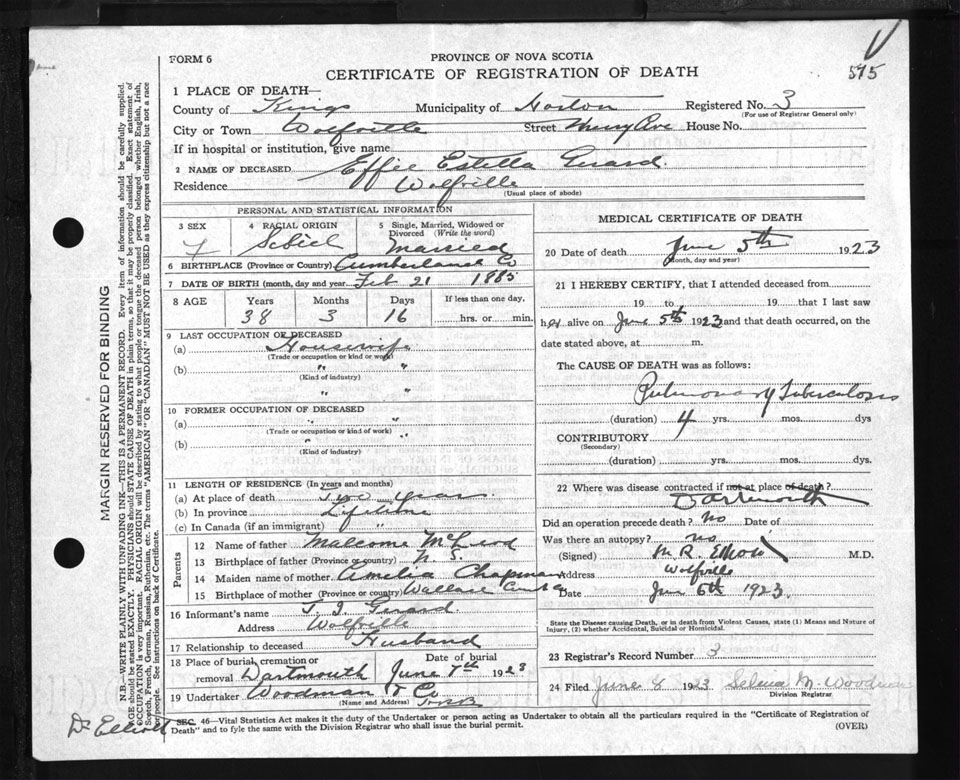 FORM 6
PROVINCE OF NOVA SCOTIA
CERTIFICATE OF REGISTRATION OF DEATH
575
1 PLACE OF DEATH—
County of Kings Municipality of Horton Registered No. 3
(For use of Registrar General only)
City or Town Wolfville Street Ave House No.
If in hospital or institution, give name
2 NAME OF DECEASED Effie Estella Girard.
Residence Wolfville
(Usual place of abode)
PERSONAL AND STATISTICAL INFORMATION
3 SEX 4 RACIAL ORIGIN 5 Single, Married, Widowed or Divorced (Write the word)
F Married
6 BIRTHPLACE (Province or Country) Cumberland Co
7 DATE OF BIRTH (month, day and year) Feb 21 1885
8 AGE Years Months Days If less than one day.
38 3 16 hrs. or min.
9 LAST OCCUPATION OF DECEASED
(a) Housewife
(Trade or occupation or kind or work)
(b) " "
(Kind of industry)
" "
10 FORMER OCCUPATION OF DECEASED
(a) " "
(Trade or occupation or kind of work)
(b) " "
(Kind of industry)
11 LENGTH OF RESIDENCE (In years and months)
(a) At place of death Two years
(b) In province Lifetime
(c) In Canada (if an immigrant) "
Parents
12 Name of father Malcome McLeod
13 Birthplace of father (Province or country) N. S.
14 Maiden name of mother Amelia Chapman
15 Birthplace of mother (Province or country) Wallace
16 Informant's name T. J. Girard
Address Wolfville
17 Relationship to deceased Husband
18 Place of burial, cremation or removal Dartmouth Date of burial June 7th 1923
19 Undertaker Woodman & Co
(Name and Address)
MEDICAL CERTIFICATE OF DEATH
20 Date of death June 5th 1923
(Month, day and year)
21 I HEREBY CERTIFY, that I attended deceased from
19 to 19 that I last saw
her alive on June 5th 1923 and that death occurred, on the
date stated above, at m.
The CAUSE OF DEATH was as follows:
Pulmonary Tuberculosis
(duration) 4 yrs. mos. dys
CONTRIBUTORY
(Secondary)
(duration) yrs. mos. dys.
22 Where was disease contracted if not at place of death?
Dartmouth
Did an operation precede death? No Date of
Was there an autopsy? no
(Signed) M. R. Elliott M.D.
Address Wolfville
Date June 6th 1923.
State the Disease causing Death, or in death from Violent Causes, state (1) Means and Nature of
Injury, (2) whether Accidental, Suicidal or Homicidal.
23 Registrar's Record Number 3
24 Filed June 8 1923 Selena M. Woodman
Division Registrar
SEC. 46—Vital Statistics Act makes it the duty of the Undertaker or person acting as Undertaker to obtain all the particulars required in the "Certificate of Registration of
Death" and to fyle the same with the Division Registrar who shall issue the burial permit. (OVER)
Dr Elliott
MARGIN RESERVED FOR BINDING
N.B.—WRITE PLAINLY WITH UNFADING INK—THIS IS A PERMANENT RECORD. Every item of information should be carefully supplied.
AGE should be stated EXACTLY. PHYSICIANS should STATE CAUSE OF DEATH in plain terms, so that it may be properly classified. Exact statement of
OCCUPATION is very important. RACIAL ORIGIN will be described by stating to what people or tongue the deceased person belonged whether English, Irish,
Scotch, French, German, Russian, Ruthenian, etc. The terms "AMERICAN" OR "CANADIAN" MUST NOT BE USED as they express citizenship but not a race
or people. See instructions on back of Certificate.